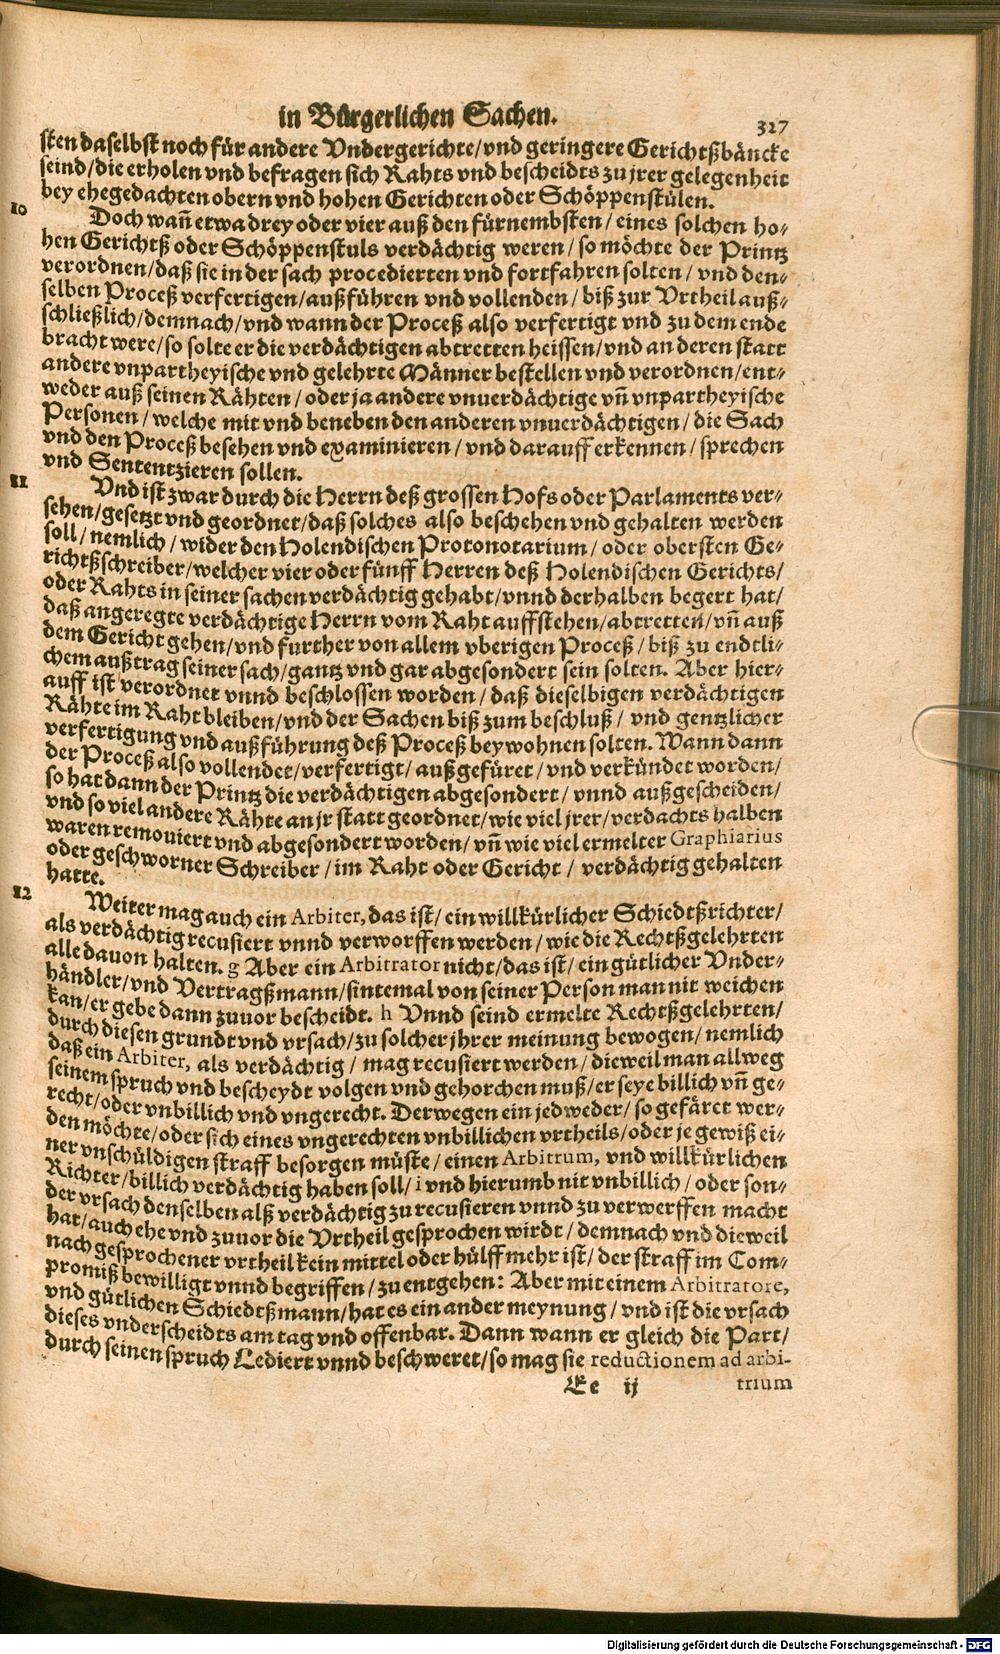 in Bürgerlichen Sachen. 327
sten daselbst noch für andere Vndergerichte/vnd geringere Gerichtßbäncke
seind/die erholen vnd befragen sich Rahts vnd bescheidts zu jrer gelegenheit
bey ehegedachten obern vnd hohen Gerichten oder Schöppenstülen.
10 Doch wañ etwa drey oder vier auß den fürnembsten/eines solchen ho-
hen Gerichtß oder Schöppenstuls verdächtig weren/so möchte der Printz
verordnen/daß sie in der sach procedierten vnd fortfahren solten/vnd den-
selben Proceß verfertigen/außführen vnd vollenden/biß zur Vrtheil auß-
schließlich/demnach/vnd wann der Proceß also verfertigt vnd zu dem ende
bracht were/so solte er die verdächtigen abtretten heissen/vnd an deren statt
andere vnpartheyische vnd gelehrte Männer bestellen vnd verordnen/ent-
weder auß seinen Rähten/oder ja andere vnuerdächtige vñ vnpartheyische
Personen/welche mit vnd beneben den anderen vnuerdächtigen/die Sach
vnd den Proceß besehen vnd examinieren/vnd darauff erkennen/sprechen
vnd Sententzieren sollen.
11 Vnd ist zwar durch die Herrn deß grossen Hofs oder Parlaments ver-
sehen/gesetzt vnd geordnet/daß solches also beschehen vnd gehalten werden
soll/nemlich/wider den Holendischen Protonotarium/oder obersten Ge-
richtßschreiber/welcher vier oder fünff Herren deß Holendischen Gerichts/
oder Rahts in seiner sachen verdächtig gehabt/vnnd derhalben begert hat/
daß angeregte verdächtige Herrn vom Raht auffstehen/abtretten/vñ auß
dem Gericht gehen/vnd further von allem vberigen Proceß/biß zu endtli-
chem außtrag seiner sach/gantz vnd gar abgesondert sein solten. Aber hier-
auff ist verordnet vnnd beschlossen worden/daß dieselbigen verdächtigen
Rähte im Raht bleiben/vnd der Sachen biß zum beschluß/vnd gentzlicher
verfertigung vnd außführung deß Proceß beywohnen solten. Wann dann
der Proceß also vollendet/verfertigt/außgefüret/vnd verkündet worden/
so hat dann der Printz die verdächtigen abgesondert/vnnd außgescheiden/
vnd so viel andere Rähte an jr statt geordnet/wie viel jrer/verdachts halben
waren remouiert vnd abgesondert worden/vñ wie viel ermelter Graphiarius
oder geschworner Schreiber/im Raht oder Gericht/verdächtig gehalten
hatte.
12 Weiter mag auch ein Arbiter, das ist/ein willkürlicher Schiedtßrichter/
als verdächtig recusiert vnnd verworffen werden/wie die Rechtßgelehrten
alle dauon halten. g Aber ein Arbitrator nicht/das ist/ein gütlicher Vnder-
händler/vnd Vertragßmann/sintemal von seiner Person man nit weichen
kan/er gebe dann zuuor bescheidt. h Vnnd seind ermelte Rechtßgelehrten/
durch diesen grundt vnd vrsach/zu solcher jhrer meinung bewogen/nemlich
daß ein Arbiter, als verdächtig/mag recusiert werden/dieweil man allweg
seinem spruch vnd bescheydt volgen vnd gehorchen muß/er seye billich vñ ge-
recht/oder vnbillich vnd vngerecht. Derwegen ein jedweder/so gefäret wer-
den möchte/oder sich eines vngerechten vnbillichen vrtheils/oder je gewiß ei-
ner vnschüldigen straff besorgen müste/einen Arbitrum, vnd willkürlichen
Richter/billich verdächtig haben soll/i vnd hierumb nit vnbillich/oder son-
der vrsach denselben alß verdächtig zu recusieren vnnd zu verwerffen macht
hat/auch ehe vnd zuuor die Vrtheil gesprochen wirdt/demnach vnd dieweil
nach gesprochener vrtheil kein mittel oder hülff mehr ist/der straff im Com-
promiß bewilligt vnnd begriffen/zu entgehen: Aber mit einem Arbitratore,
vnd gütlichen Schiedtßmann/hat es ein ander meynung/vnd ist die vrsach
dieses vnderscheidts am tag vnd offenbar. Dann wann er gleich die Part/
durch seinen spruch Lediert vnnd beschweret/so mag sie reductionem ad arbi-
Ee ij trium
Digitalisierung gefördert durch die Deutsche Forschungsgemeinschaft - DFG